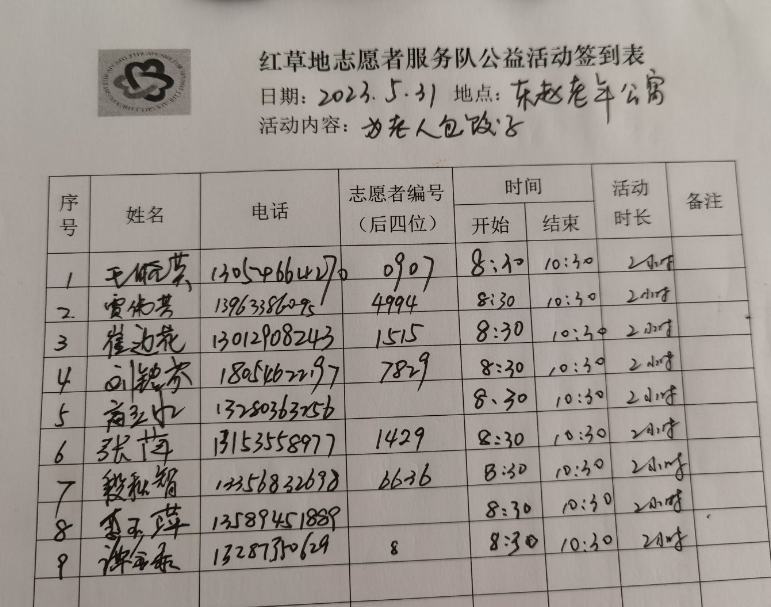 红草地志愿者服务队公益活动签到表
日期：2023.5.31 地点：东赵老年公寓
活动内容：为老人包饺子
序号 姓名 电话 志愿者编号（后四位） 时间 开始 结束 活动时长 备注
1 13054664270 0907 8:30 10:30 2小时
2. 13963386095 4994 8:30 10:30 2小时
3 崔迎花 13012908243 1515 8:30 10:30 2小时
4 18054622197 7829 8:30 10:30 2小时
5 13280363256 8:30 10:30 2小时
6 张萍 13153558977 1429 8:30 10:30 2小时
7 13356832698 6636 8:30 10:30 2小时
8 李玉萍 13589451889 8:30 10:30 2小时
9 13287350629 8 8:30 10:30 2小时